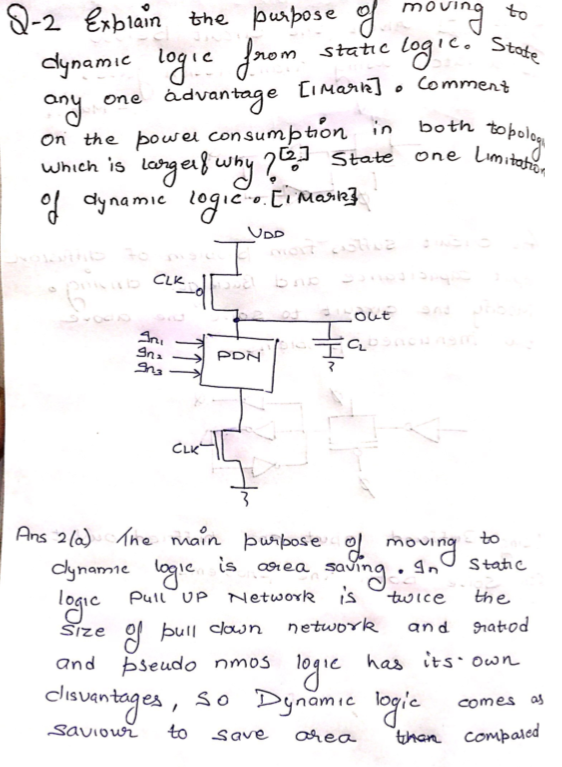 Q-2 Explain the purpose of moving to
dynamic logic from static logic. State
any one advantage [1Mark]. Comment
on the power consumption in both topolog
which is larger & why? [2] State one Limitation
of dynamic logic. [1 Mark]
VDD
CLK
out
In1
In2
In3
PDN
CL
CLK
Ans 2(a) The main purpose of moving to
dynamic logic is area saving. In static
logic Pull UP Network is twice the
size of pull down network and ratiod
and pseudo nmos logic has its own
disvantages, so Dynamic logic comes as
saviour to save area than compared